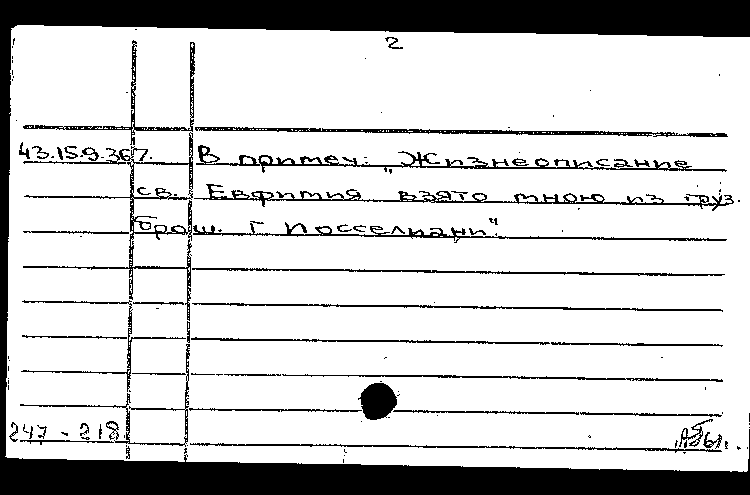 2
43.15.9.367. В примеч: „Жизнеописание
св. Евфимия взято мною из груз.
брош. Г Иосселиани“.
247 - 218.